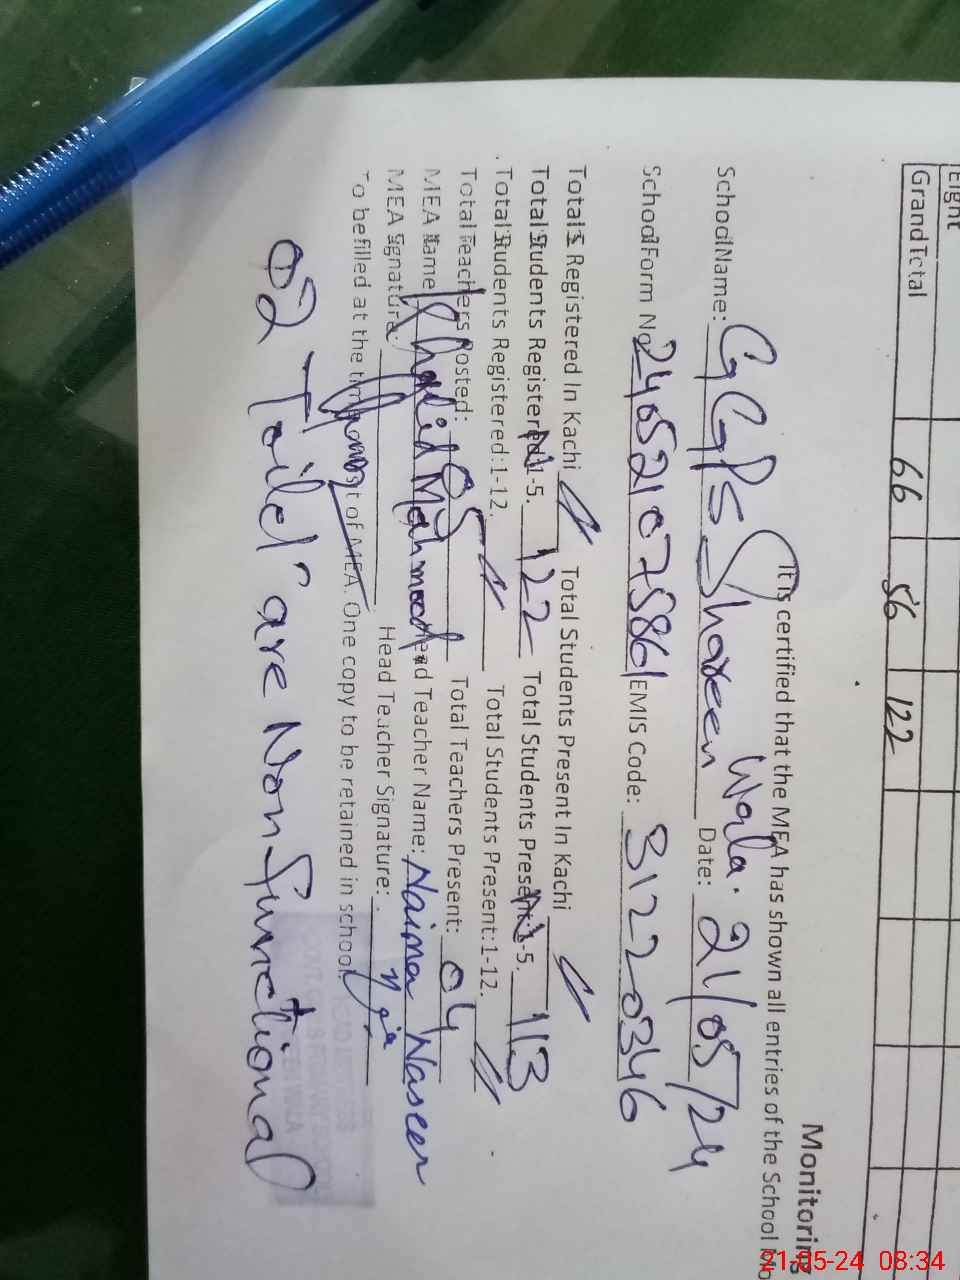 Eight
Grand Total 66 56 122
Monitoring
It is certified that the MEA has shown all entries of the School Mo
School Name: GGPS Shareen Wala. Date: 21/05/24
School Form No 240521075861 EMIS Code: 31220346
Totals Registered In Kachi Total Students Present In Kachi
Total Students Registered: N-5. 122 Total Students Present: N-5. 113
Total Students Registered: 1-12. Total Students Present: 1-12.
Total Teachers Posted: 05 Total Teachers Present: 04
MEA Name Khalid Mahmood Head Teacher Name: Naima Naseer
MEA Signature Head Teacher Signature:
To be filled at the time of MEA. One copy to be retained in school
02 Toilet are Non functional
21-05-24 08:34